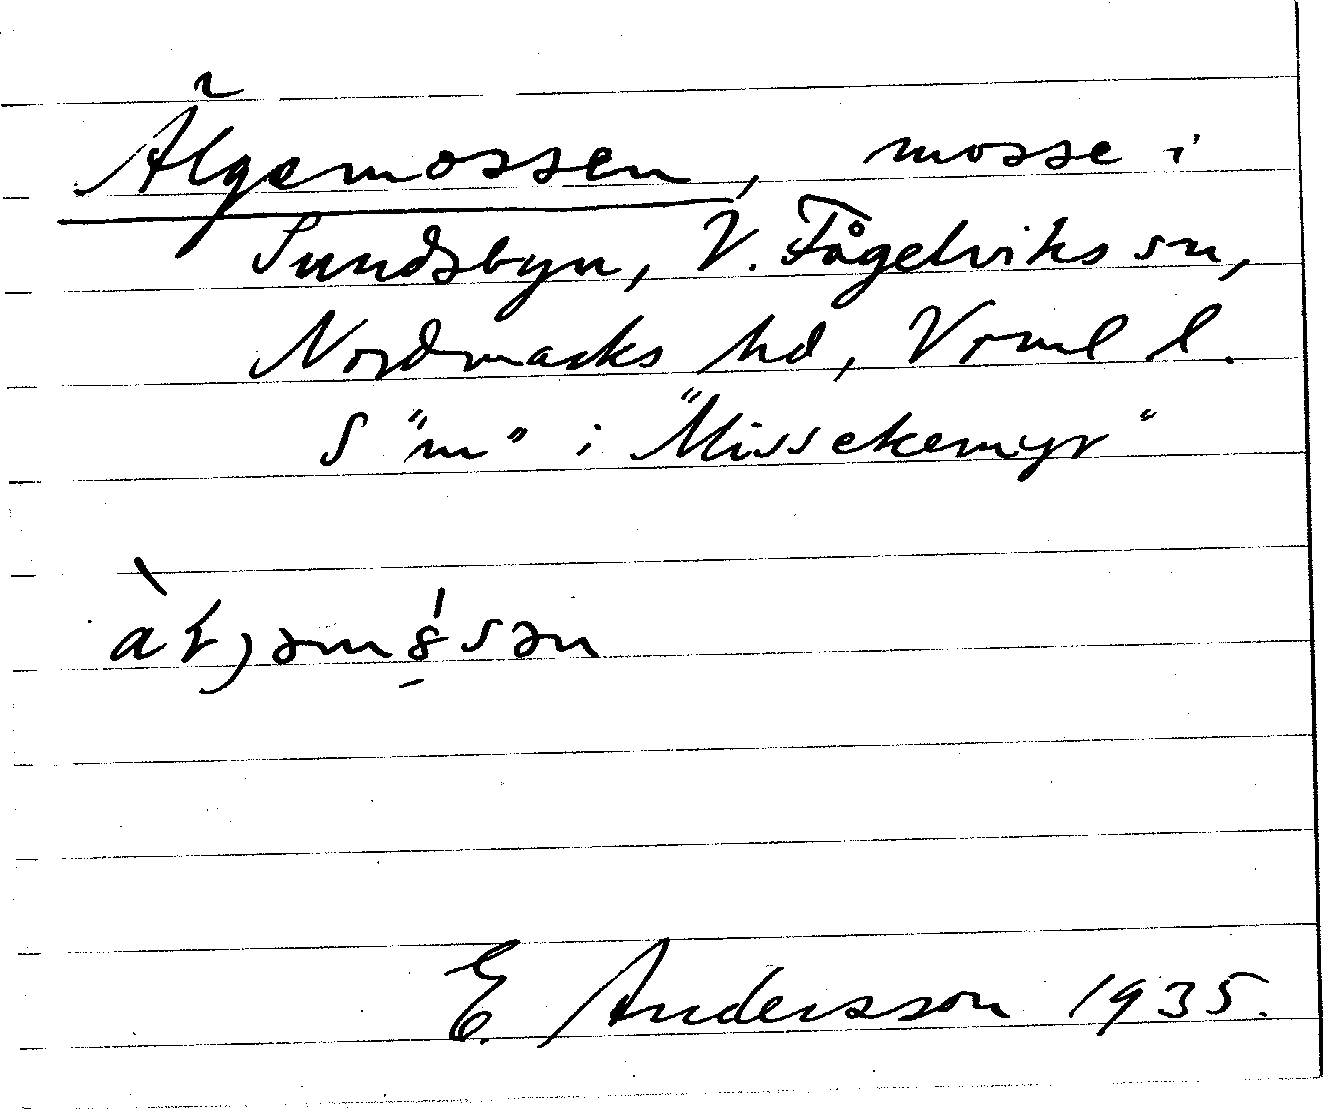 Älgemossen, mosse i
Sundsbyn, V. Fågelviks sn,
Nordmarks hd, Vrml l.
S "m" i "Missekemyr"
E. Andersson 1935.